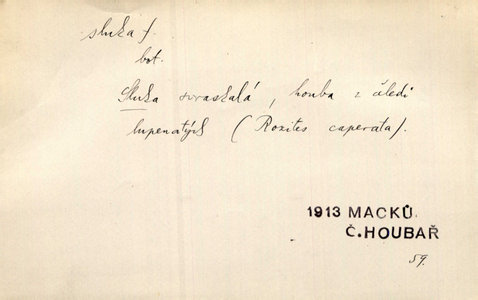 sluka f.
bot.
Sluka svraskalá, houba z čledi
lupenatých (Rozites caperata).
1913 MACKŮ.
Č.HOUBAŘ
59.